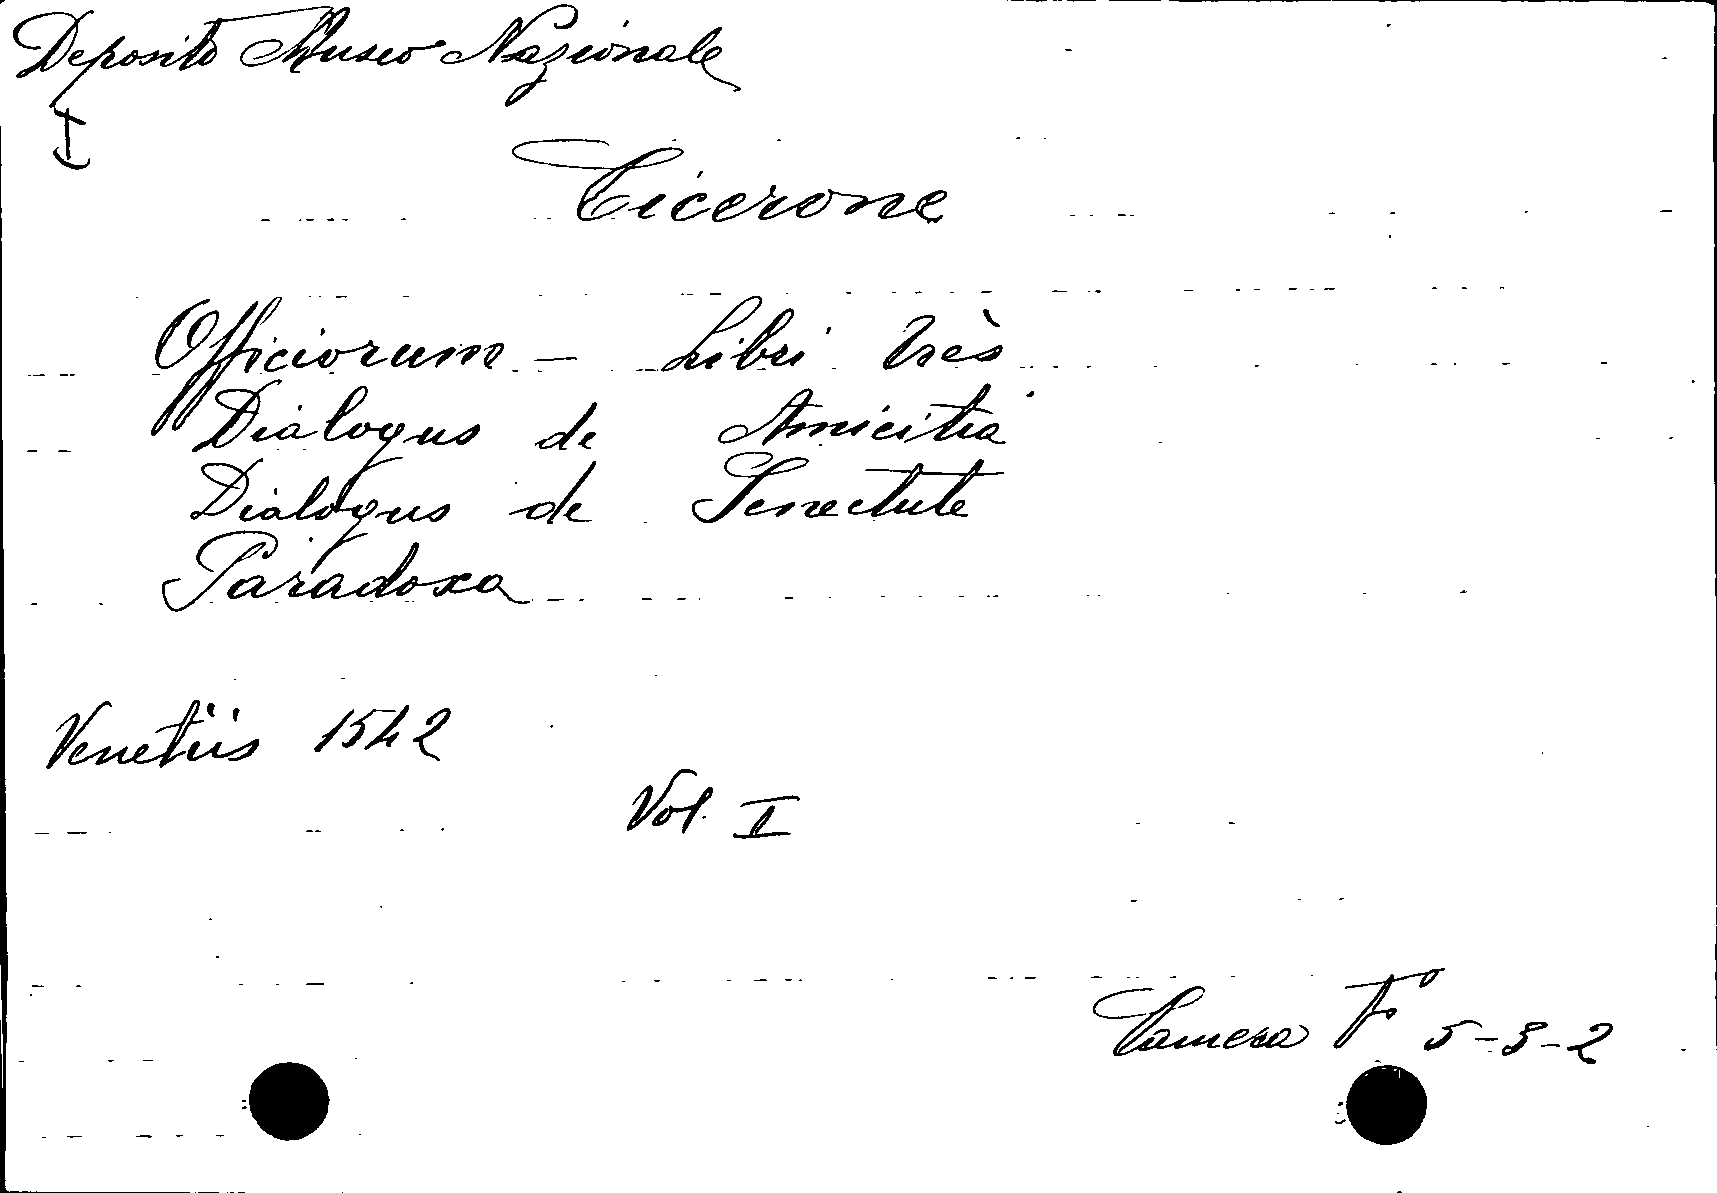 Deposito Museo Nazionale
I
Cicerone
Officiorum - Libri très
Dialogus de Amicitia
Dialogus de Senectute
Paradoxa
Venetiis 1542
Vol. I
Camera F 5-3-2